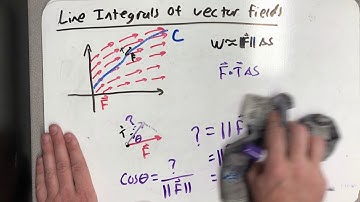 Line Integrals of Vector Fields
C
W ≈ ||F⃗|| ΔS
F⃗ • T⃗ ΔS
F⃗
?
θ
F⃗
? = ||F⃗
cosθ = ? / ||F⃗||
=
=